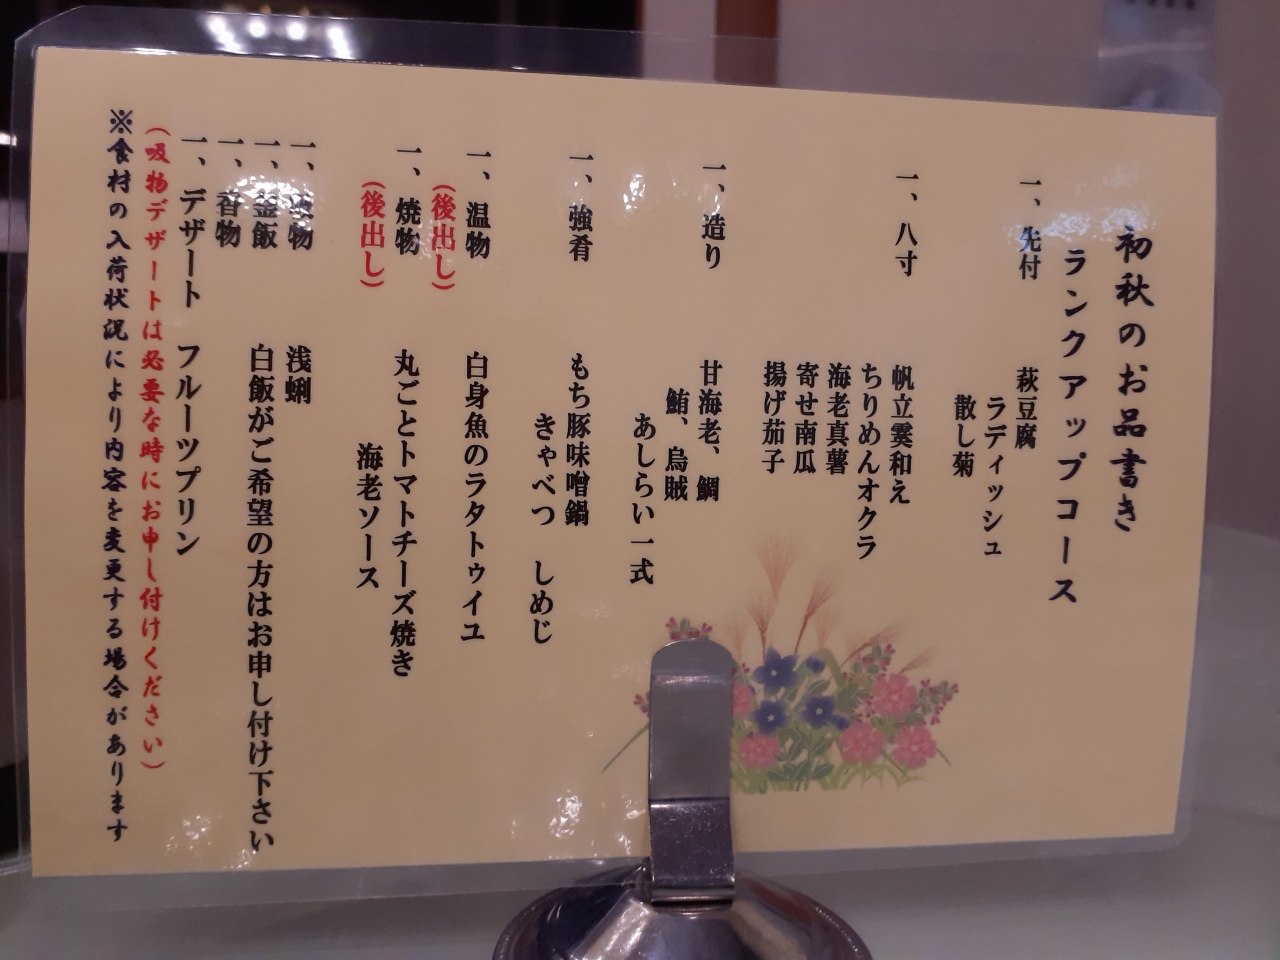 初秋のお品書き
ランクアップコース
一、先付　萩豆腐
ラディッシュ
散し菊
一、八寸　帆立霙和え
ちりめんオクラ
海老真薯
寄せ南瓜
揚げ茄子
一、造り　甘海老、鯛
鮪、烏賊
あしらい一式
一、強肴　もち豚味噌鍋
きゃべつ　しめじ
一、温物　白身魚のラタトゥイユ
（後出し）
一、焼物　丸ごとトマトチーズ焼き
（後出し）　海老ソース
一、吸物　浅蜊
一、釜飯　白飯がご希望の方はお申し付け下さい
一、香物
一、デザート　フルーツプリン
（吸物デザートは必要な時にお申し付けください）
※食材の入荷状況により内容を変更する場合があります